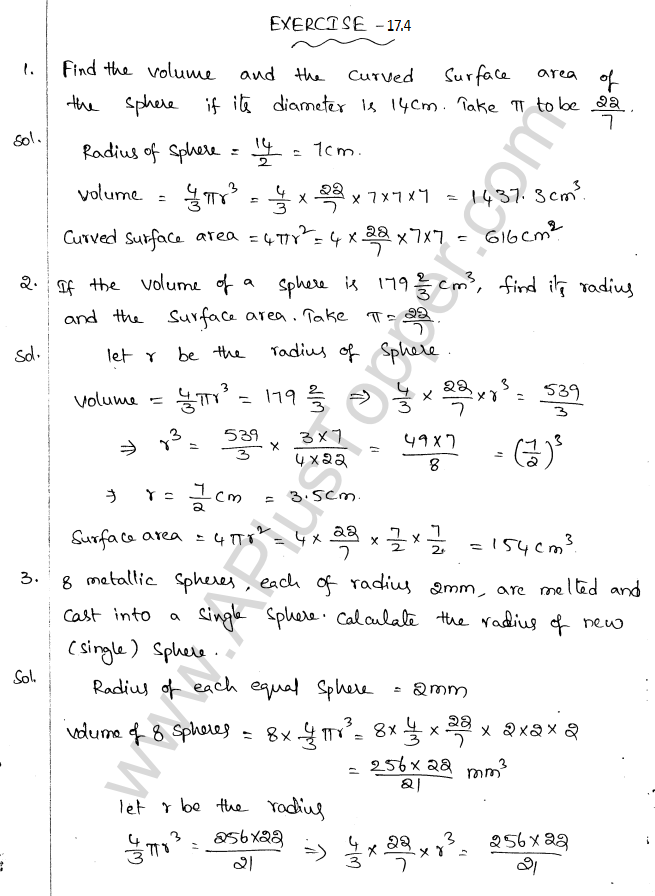 EXERCISE - 17.4
1. Find the volume and the curved surface area of
the sphere if its diameter is 14cm. Take π to be 22/7.
Sol. Radius of sphere = 14/2 = 7cm.
Volume = 4/3 πr³ = 4/3 × 22/7 × 7×7×7 = 1437.3cm³.
Curved surface area = 4πr² = 4 × 22/7 × 7×7 = 616cm²
2. If the volume of a sphere is 179 2/3 cm³, find its radius
and the surface area. Take π = 22/7.
Sol. let r be the radius of sphere.
Volume = 4/3 πr³ = 179 2/3 ⇒ 4/3 × 22/7 × r³ = 539/3
⇒ r³ = 539/3 × 3×7/4×22 = 49×7/8 = (7/2)³
⇒ r = 7/2 cm = 3.5cm.
Surface area = 4πr² = 4 × 22/7 × 7/2 × 7/2 = 154cm³.
3. 8 metallic spheres, each of radius 2mm, are melted and
cast into a single sphere. Calculate the radius of new
(single) sphere.
Sol. Radius of each equal sphere = 2mm
Volume of 8 spheres = 8× 4/3 πr³ = 8× 4/3 × 22/7 × 2×2×2
= 256×22/21 mm³
let r be the radius
4/3 πr³ = 256×22/21 ⇒ 4/3 × 22/7 × r³ = 256×22/21
www.APlusTopper.com